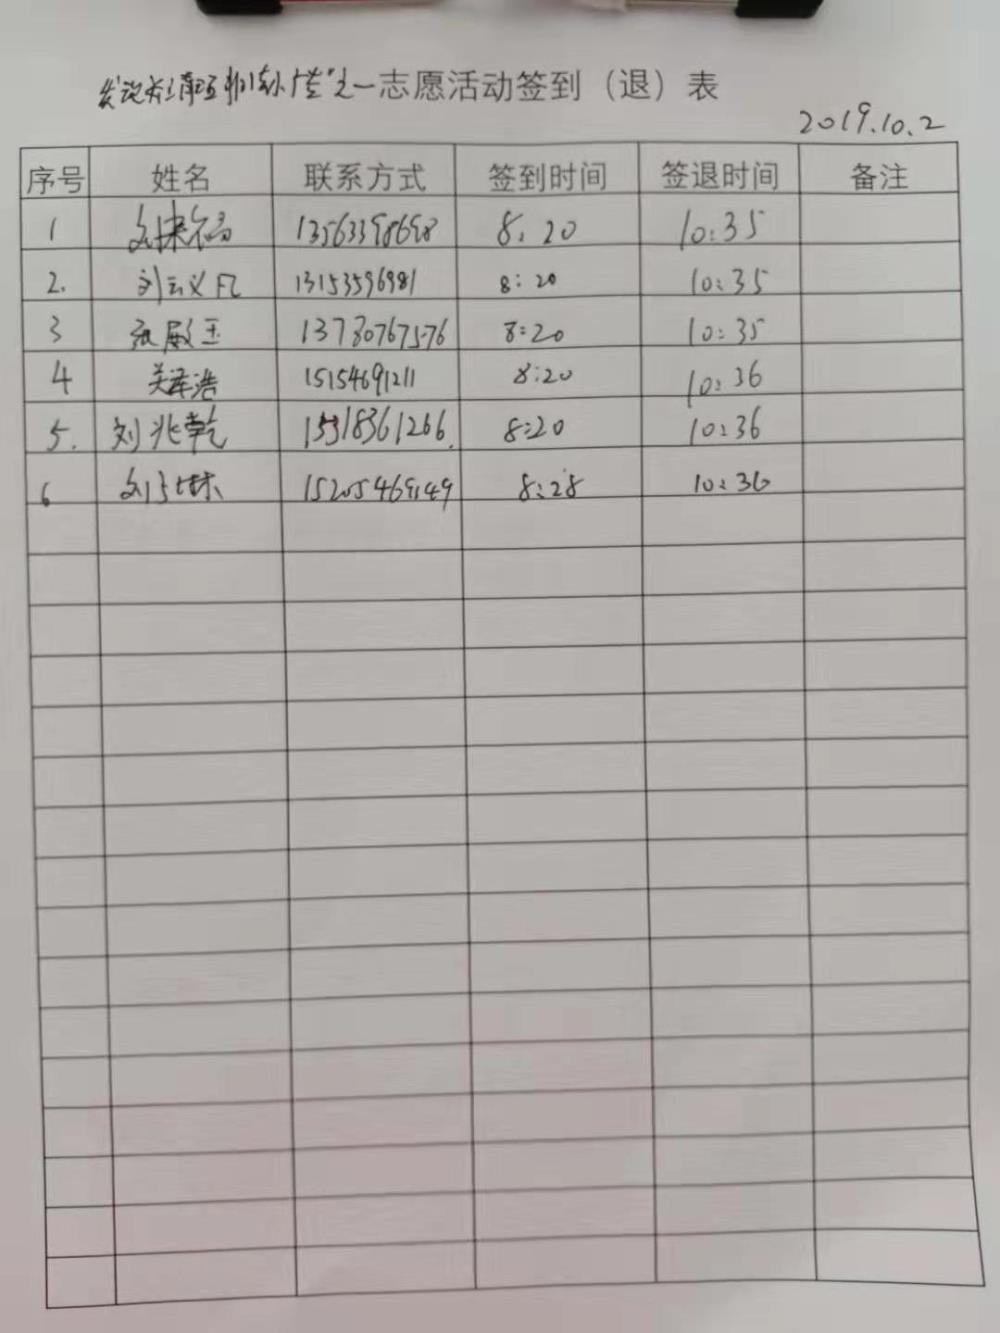 志愿活动签到（退）表
2019.10.2
序号 姓名 联系方式 签到时间 签退时间 备注
1 13563398698 8:20 10:35
2. 刘云义凡 13153596981 8:20 10:35
3 玉 13780767576 8:20 10:35
4 关泽浩 15154691211 8:20 10:36
5. 刘兆乾 15318361266. 8:20 10:36
6 15205469149 8:28 10:36